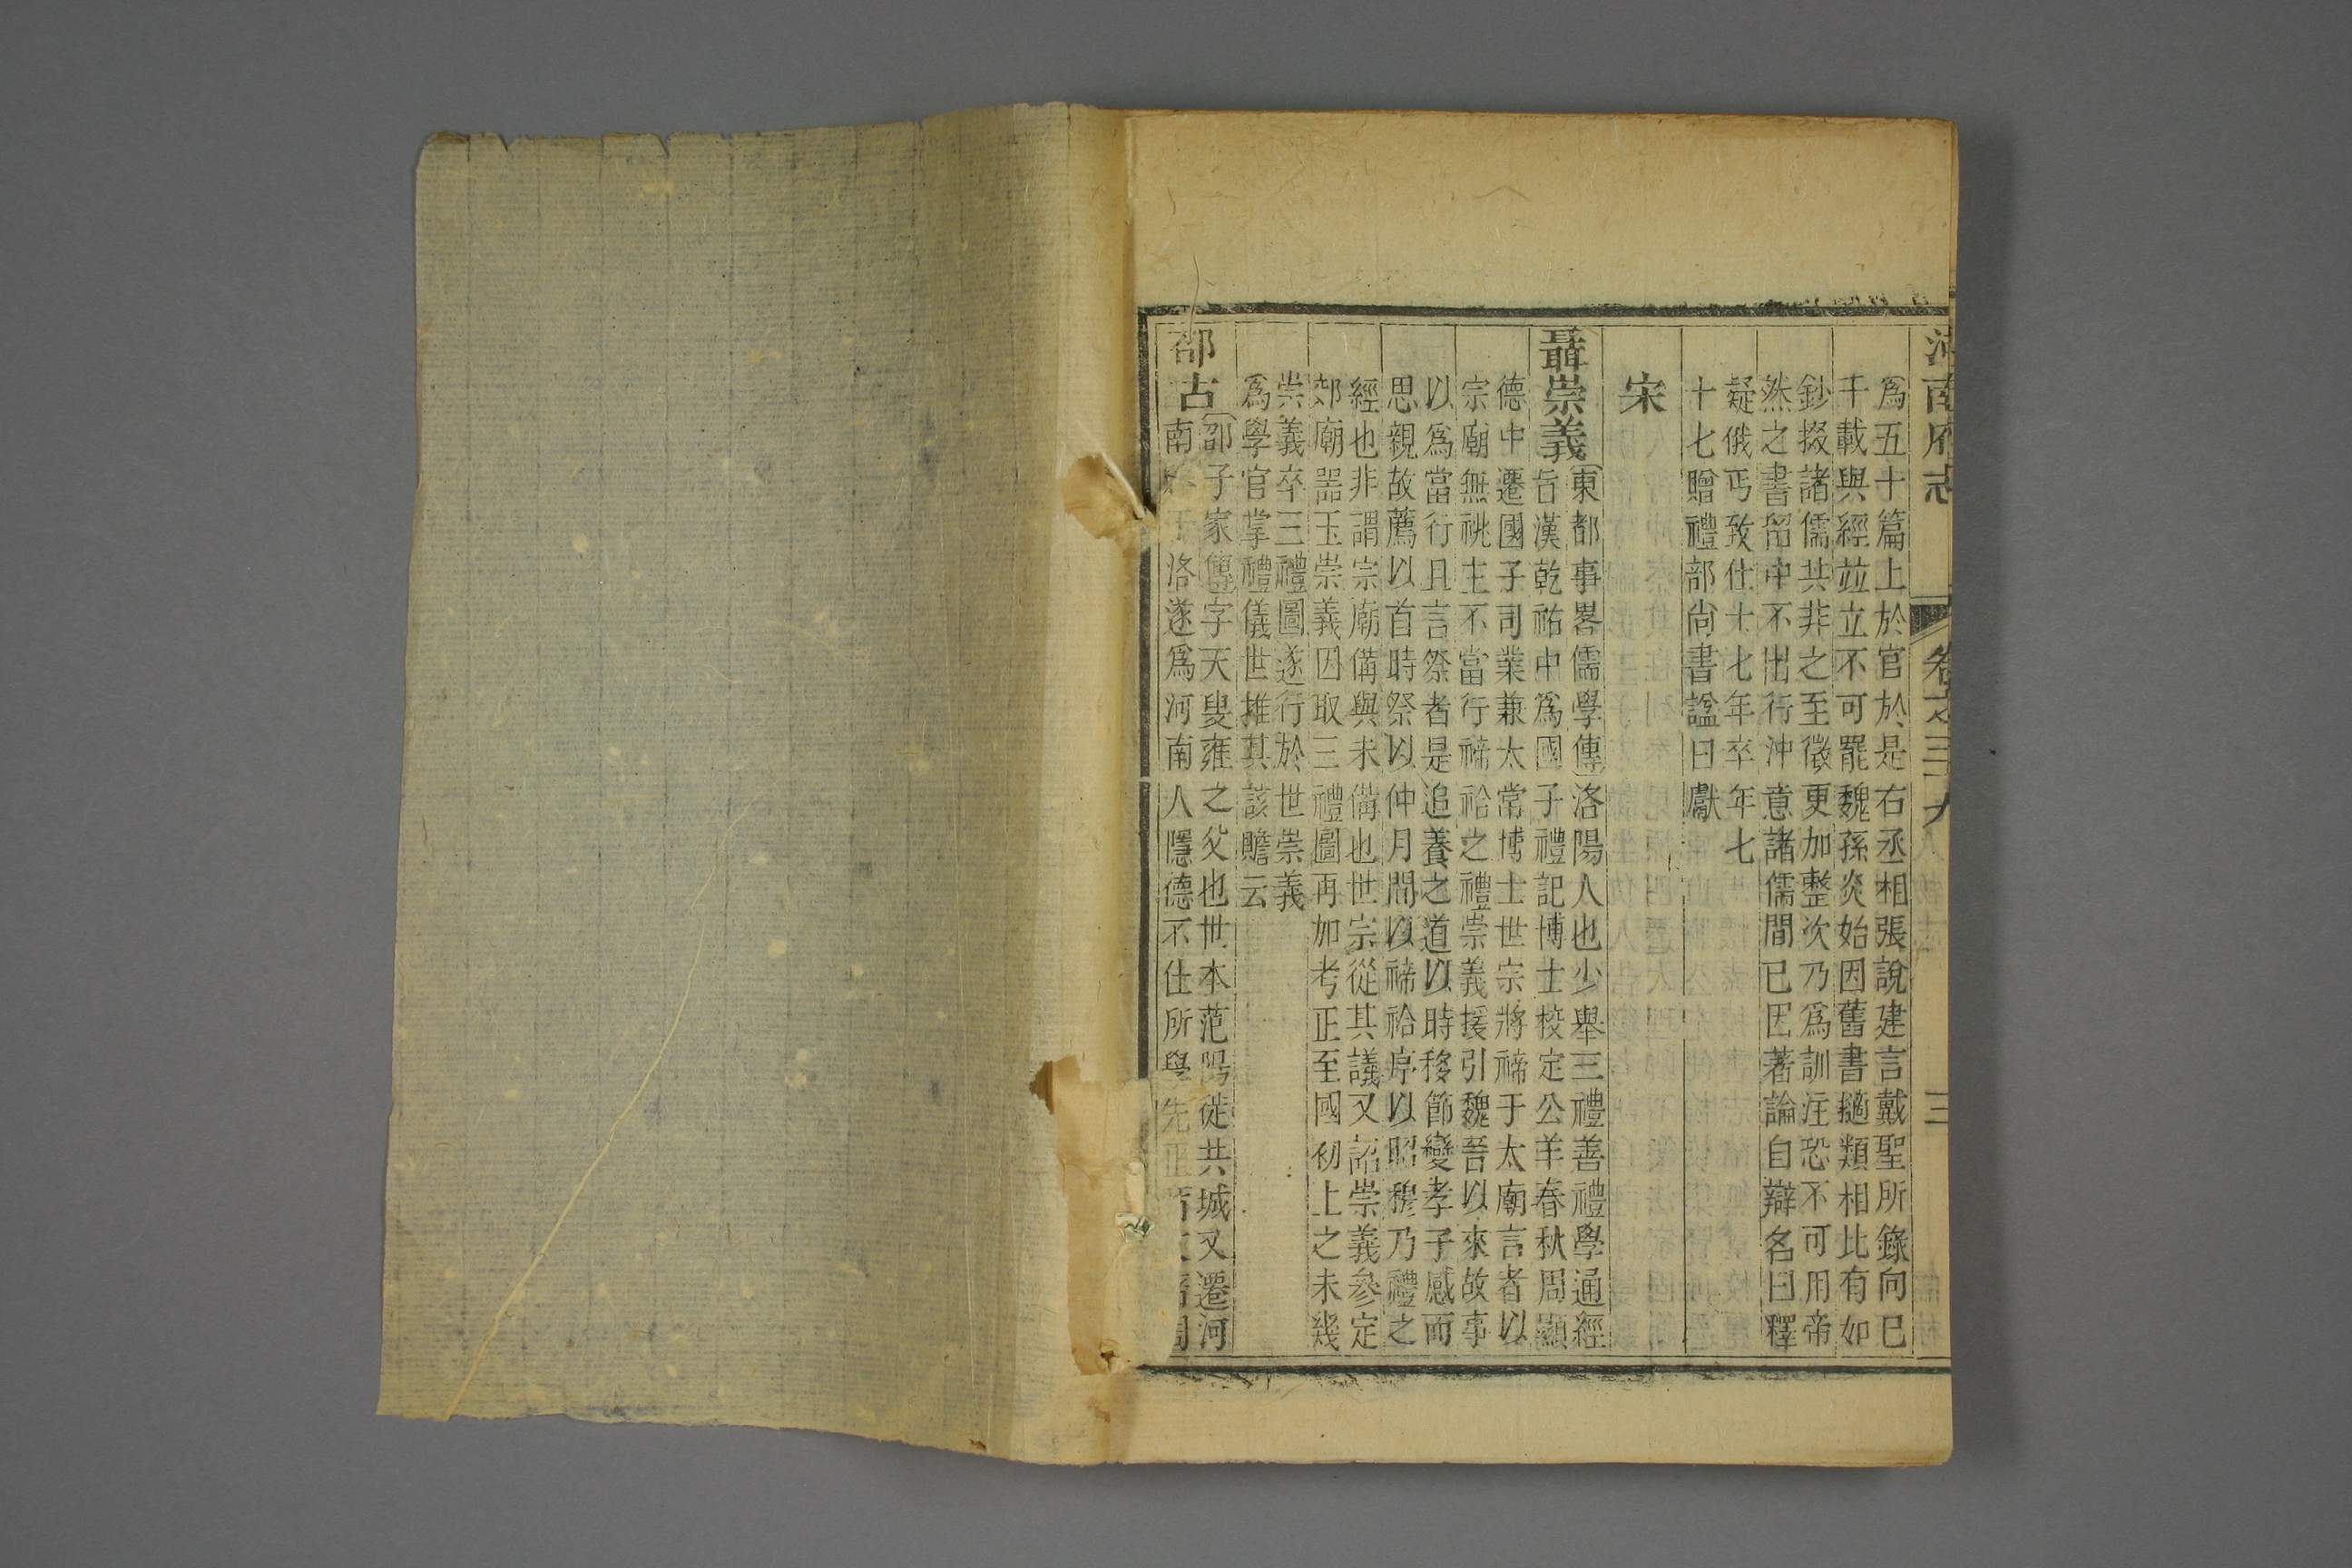 河南府志 卷之三十九 三
爲五十篇上於官於是右丞相張說建言戴聖所錄向已
千載與經竝立不可罷魏孫炎始因舊書擿類相比有如
鈔掇諸儒共非之至徵更加整次乃爲訓注恐不可用帝
然之書留中不出行沖意諸儒間已因著論自辯名曰釋
疑俄丐致仕十七年卒年七
十七贈禮部尙書諡曰獻
宋
聶崇義(東都事畧儒學傳)洛陽人也少舉三禮善禮學通經
旨漢乾祐中爲國子禮記博士校定公羊春秋周顯
德中遷國子司業兼太常博士世宗將禘于太廟言者以
宗廟無祧主不當行禘祫之禮崇義援引魏晉以來故事
以爲當行且言祭者是追養之道以時移節變孝子感而
思親故薦以首時祭以仲月間以禘祫序以昭穆乃禮之
經也非謂宗廟備與未備也世宗從其議又詔崇義參定
郊廟器玉崇義因取三禮圖再加考正至國初上之未幾
崇義卒三禮圖遂行於世崇義
爲學官掌禮儀世推其該贍云
邵古(邵子家傳)字天叟雍之父也世本范陽徙共城又遷河
南 洛遂爲河南人隱德不仕所學先正